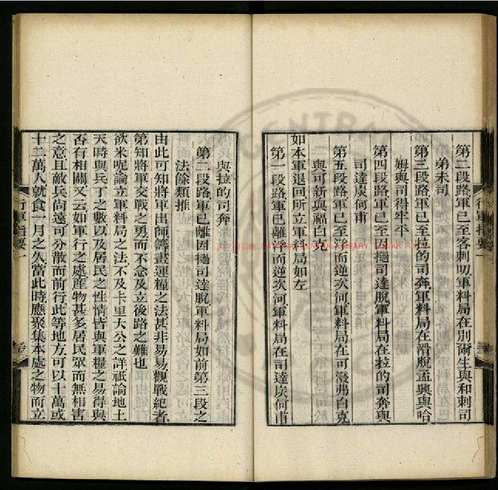 第二段路軍已至客刺叨軍料局在別爾生與和刺司
弟未司
第三段路軍已至拉的司奔軍料局在滑脫孟與與哈
姆與司得牢平
第四段路軍已至因撾司達脫軍料局在拉的司奔與
司達炭何甫
第五段路軍已至浮而逆軍料局在可潑弗白克
與可新與福白克
如本軍退回所立軍料局如左
第一段路軍已離浮而逆次列軍料局在司達炭何甫
與拉的司奔
第二段路軍已離因撾司達脫軍料局如前第三段之
法餘類推
由此可知將軍出師籌畫運糧之法甚非易易觀戰紀者
第知將軍交戰之勇而不念及立後路之難也
欲米呢論立軍料局之法不及卡里大公之詳祇論地土
天時與兵丁之數以及居民之性情皆與軍糧之易得與
否有相關又云如軍行之處產物甚多居民眾而無相害
之意且敵兵尚遠可分散而前行此等地方可以十萬或
十二萬人就食一月之久當此時應聚集本處之物而立
行軍指要一
行軍指要一